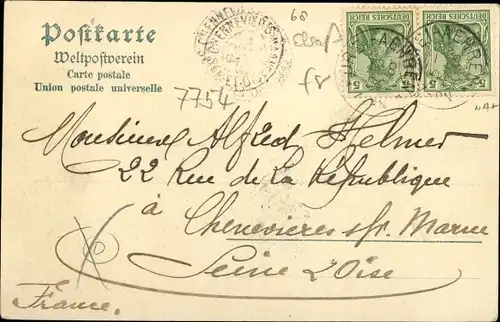 Postkarte
Weltpostverein
Carte postale
Union postale universelle
68
7754
fr
DEUTSCHES REICH
5 5
DEUTSCHES REICH
5 5
Monsieur Alfred Helmer
22 Rue de La République
à
Chenevieres s/r. Marne
Seine L'Oise
France.